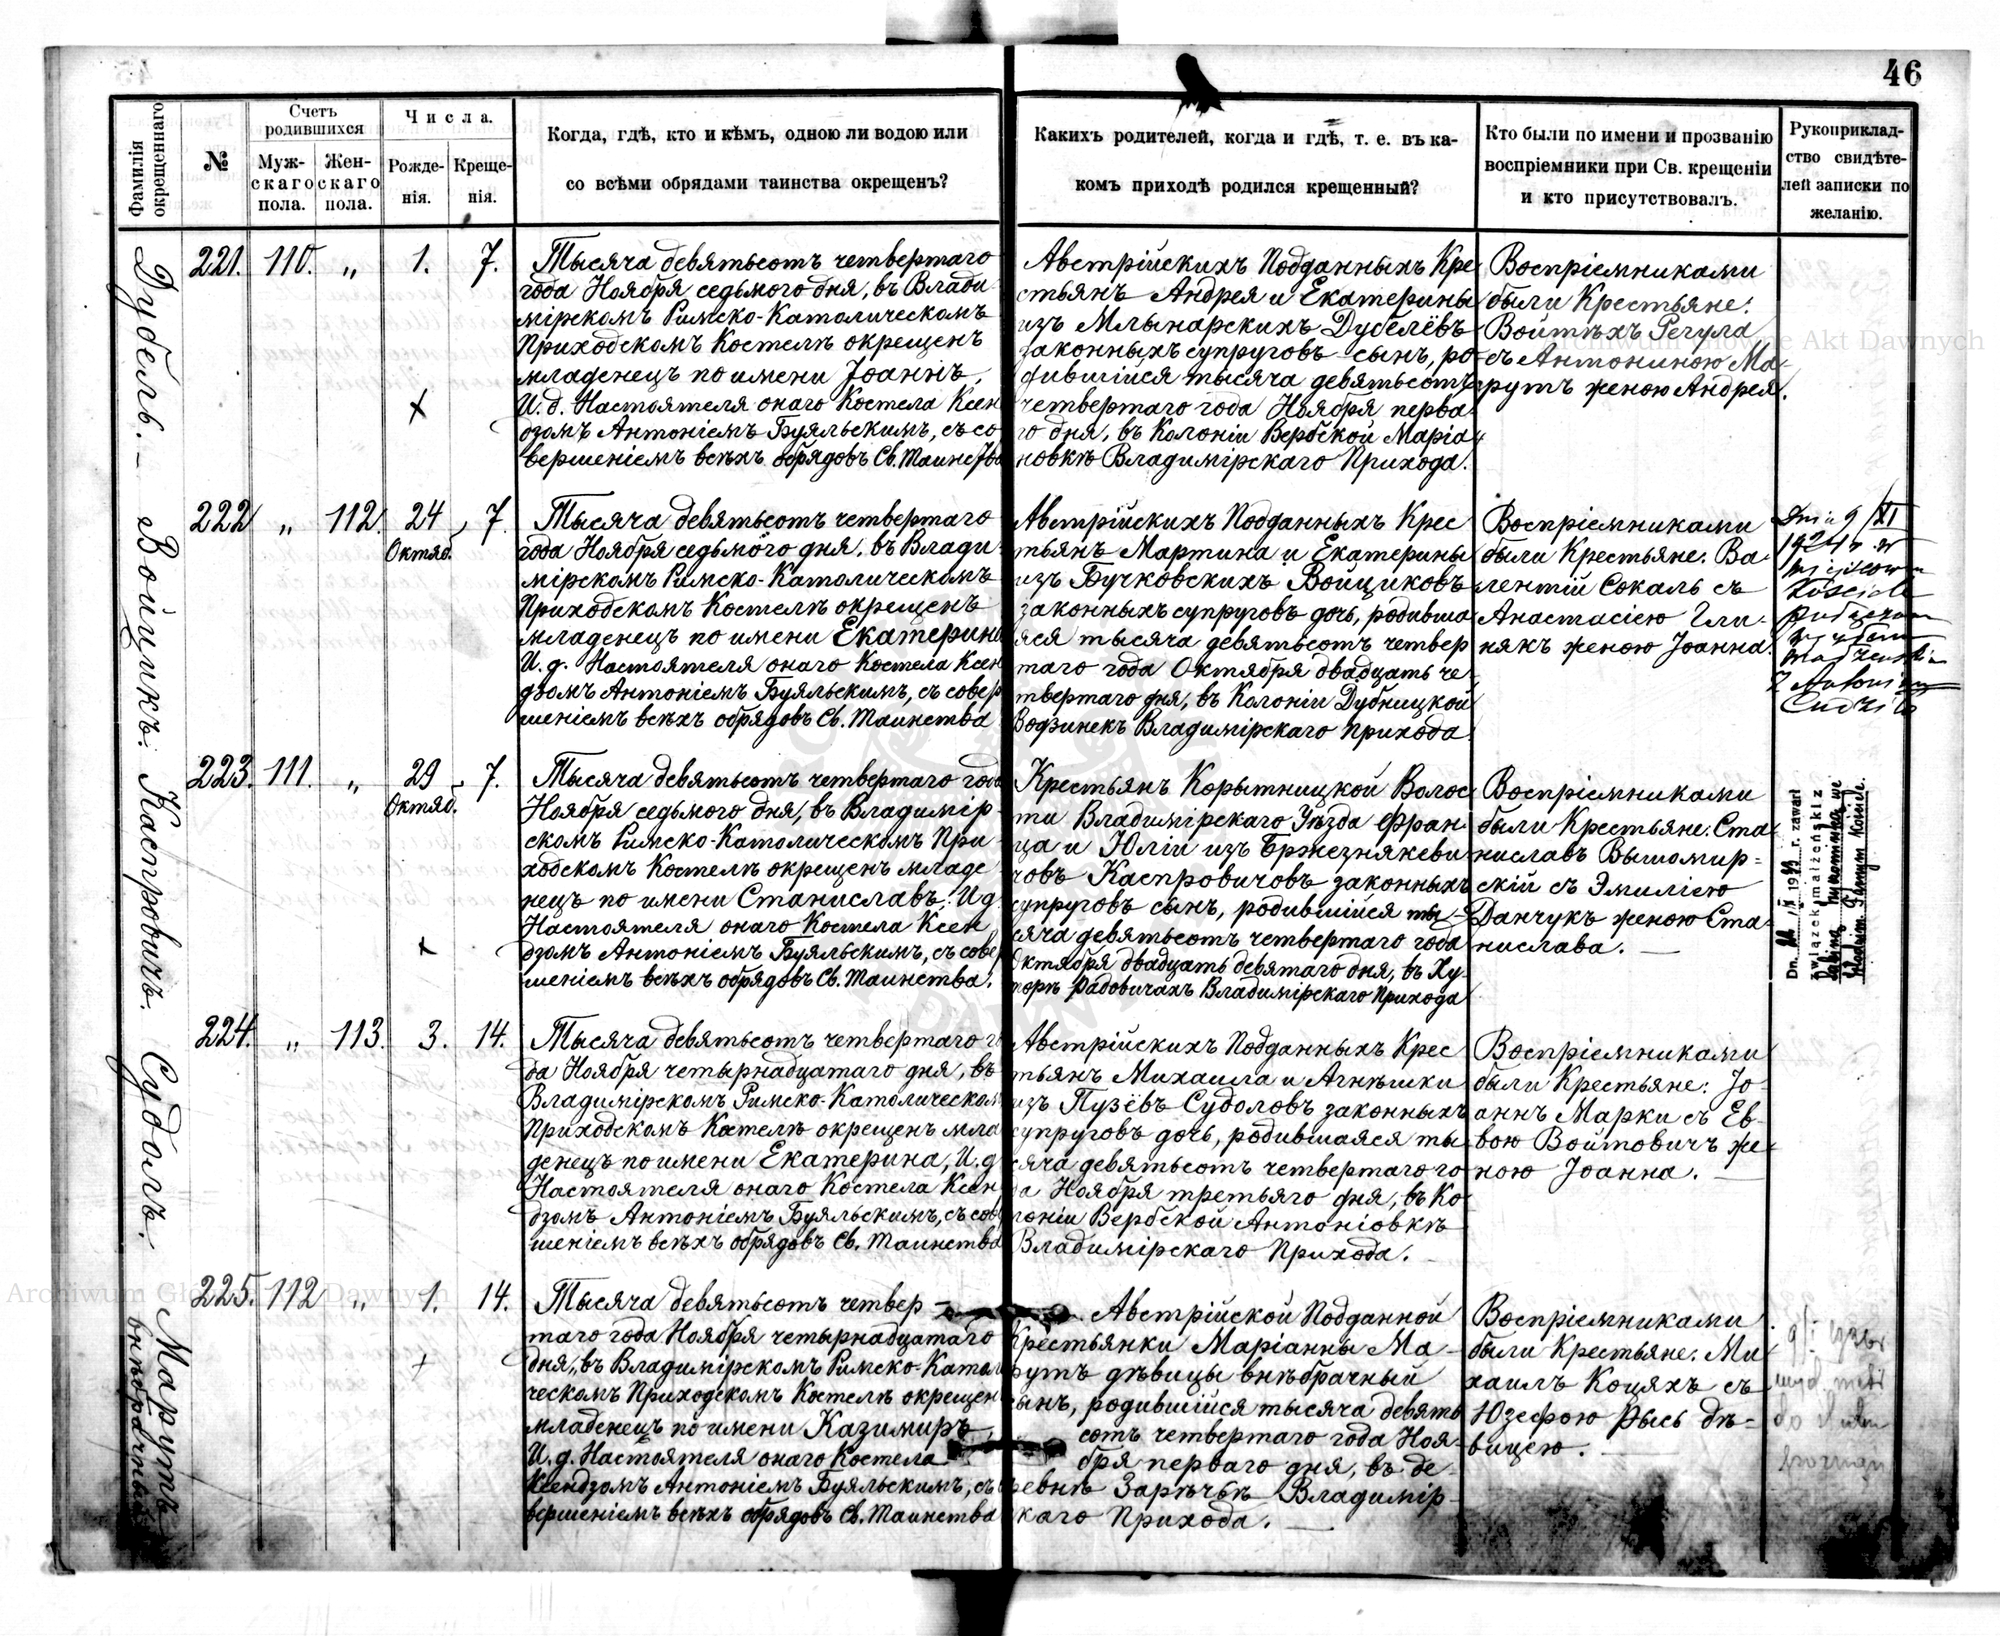 46
Фамилія окрещеннаго
№
Счетъ родившихся
Муж-скаго пола.
Жен-скаго пола.
Числа.
Рожде-нія.
Креще-нія.
Когда, гдѣ, кто и кѣмъ, одною ли водою или
со всѣми обрядами таинства окрещенъ?
Какихъ родителей, когда и гдѣ, т. е. въ ка-
комъ приходѣ родился крещенный?
Кто были по имени и прозванію
воспріемники при Св. крещеніи
и кто присутствовалъ.
Рукоприклад-
ство свидѣте-
лей записки по
желанію.
Дубель.
221. 110. „ 1. 7.
Тысяча девятьсотъ четвертаго
года Ноября седьмого дня, въ Влади
мірскомъ Римско-Католическомъ
Приходскомъ Костелѣ окрещенъ
младенецъ по имени Іоаннъ,
И. д. Настоятеля онаго Костела Ксен
дзомъ Антоніемъ Буяльскимъ, съ со
вершеніемъ всѣхъ обрядовъ Св. Таинства
Австрійскихъ Подданныхъ Кре
стьянъ Андрея и Екатерины
изъ Млынарскихъ Дубелёвъ
законныхъ супруговъ сынъ, ро
дившійся тысяча девятьсотъ
четвертаго года Ноября перва
го дня, въ Колоніи Вербской Марія
новкѣ Владимірскаго Прихода.
Воспріемниками
были Крестьяне:
Войтѣхъ Регула
съ Антониною Ма-
рутъ женою Андрея.
Войцикъ.
222 „ 112. 24 7.
Октяб.
Тысяча девятьсотъ четвертаго
года Ноября седьмого дня, въ Влади
мірскомъ Римско-Католическомъ
Приходскомъ Костелѣ окрещенъ
младенецъ по имени Екатерина
И. д. Настоятеля онаго Костела Ксен
дзомъ Антоніемъ Буяльскимъ, съ совер
шеніемъ всѣхъ обрядовъ Св. Таинства
Австрійскихъ Подданныхъ Крес
тьянъ Мартина и Екатерины
изъ Бучковскихъ Войциковъ
законныхъ супруговъ дочь, родивша
яся тысяча девятьсотъ четвер
таго года Октября двадцать че
твертаго дня, въ Колоніи Дубницкой
Водзинекъ Владимірскаго Прихода
Воспріемниками
были Крестьяне: Ва
лентій Сокаль съ
Анастасіею Гли-
някъ женою Іоанна.
Dnia 9/XI
Kościele
z Antonim
Каспровичъ.
223. 111. „ 29 7.
Октяб.
Тысяча девятьсотъ четвертаго года
Ноября седьмого дня, въ Владимір
скомъ Римско-Католическомъ При
ходскомъ Костелѣ окрещенъ младе
нецъ по имени Станиславъ, И. д.
Настоятеля онаго Костела Ксен
дзомъ Антоніемъ Буяльскимъ, съ сове
шеніемъ всѣхъ обрядовъ Св. Таинства.
Крестьянъ Корытницкой Волос
ти Владимірскаго Уѣзда Фран
ца и Юліи изъ Бржезнякеви
човъ Каспровичовъ законныхъ
супруговъ сынъ, родившійся ты-
сяча девятьсотъ четвертаго года
Октября двадцать девятаго дня, въ Ху-
торѣ Радовичахъ Владимірскаго Прихода
Воспріемниками
были Крестьяне: Ста
ниславъ Вышомир-
скій съ Эмиліею
Данчукъ женою Ста
нислава. —
r. zawarł
związek małżeński z
Судолъ.
224. „ 113. 3. 14.
Тысяча девятьсотъ четвертаго го
да Ноября четырнадцатаго дня, въ
Владимірскомъ Римско-Католическом
Приходскомъ Костелѣ окрещенъ мла
денецъ по имени Екатерина, И. д
Настоятеля онаго Костела Ксен
дзомъ Антоніемъ Буяльскимъ, съ сов
шеніемъ всѣхъ обрядовъ Св. Таинства
Австрійскихъ Подданныхъ Крес
тьянъ Михаила и Агнѣшки
изъ Пузёвъ Судоловъ законныхъ
супруговъ дочь, родившаяся ты
сяча девятьсотъ четвертаго го
да Ноября третьяго дня, въ Ко
лоніи Вербской Антоніовкѣ
Владимірскаго Прихода.
Воспріемниками
были Крестьяне: Іо
аннъ Марки съ Ев-
вою Войтовичъ же
ною Іоанна. —
Марутъ
внѣбрачный
225. 112 „ 1. 14.
Тысяча девятьсотъ четвер
таго года Ноября четырнадцатаго
дня, въ Владимірскомъ Римско-Катол
ческомъ Приходскомъ Костелѣ окрещен
младенецъ по имени Казимиръ
И. д. Настоятеля онаго Костела
Ксендзомъ Антоніемъ Буяльскимъ, съ
вершеніемъ всѣхъ обрядовъ Св. Таинства
Австрійской Подданной
Крестьянки Маріанны Ма-
рутъ дѣвицы внѣбрачный
сынъ, родившійся тысяча девять
сотъ четвертаго года Ноя-
бря перваго дня, въ де-
ревнѣ Зарѣчьѣ Владимір-
скаго Прихода. —
Воспріемниками
были Крестьяне: Ми
хаилъ Коцяхъ съ
Юзефою Рысь дѣ-
вицею. —
Archiwum Główne Akt Dawnych
Archiwum Główne Akt Dawnych